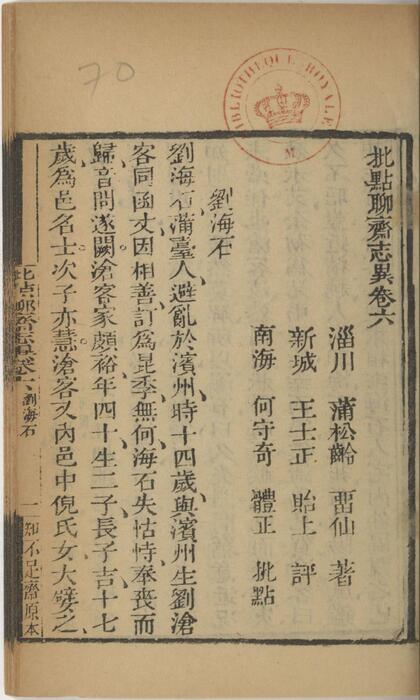 70
BIBLIOTHEQUE ROYALE
M
批點聊齋志異卷六
淄川 蒲松齡 畱仙 著
新城 王士正 貽上 評
南海 何守奇 體正 批點
劉海石
劉海石蒲臺人避亂於濱州時十四歲與濱州生劉滄
客同函丈因相善訂爲昆季無何海石失怙恃奉喪而
歸音問遂闕滄客家頗裕年四十生二子長子吉十七
歲爲邑名士次子亦慧滄客又內邑中倪氏女大嬖之
批點聊齋志異卷六 劉海石
一 知不足齋原本